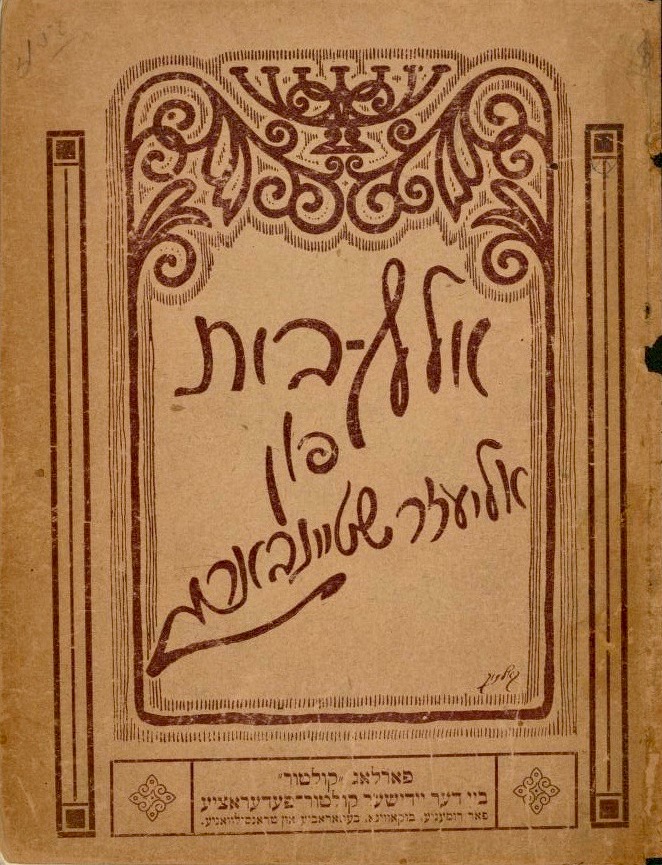 אלף-בית
פון
אליעזר שטיינבארג
פארלאג „קולטור"
ביי דער יידישער קולטור־פעדעראציע
פאר רומעניע, בוקאווינא, בעסאראביע און טראנסילוואניע.